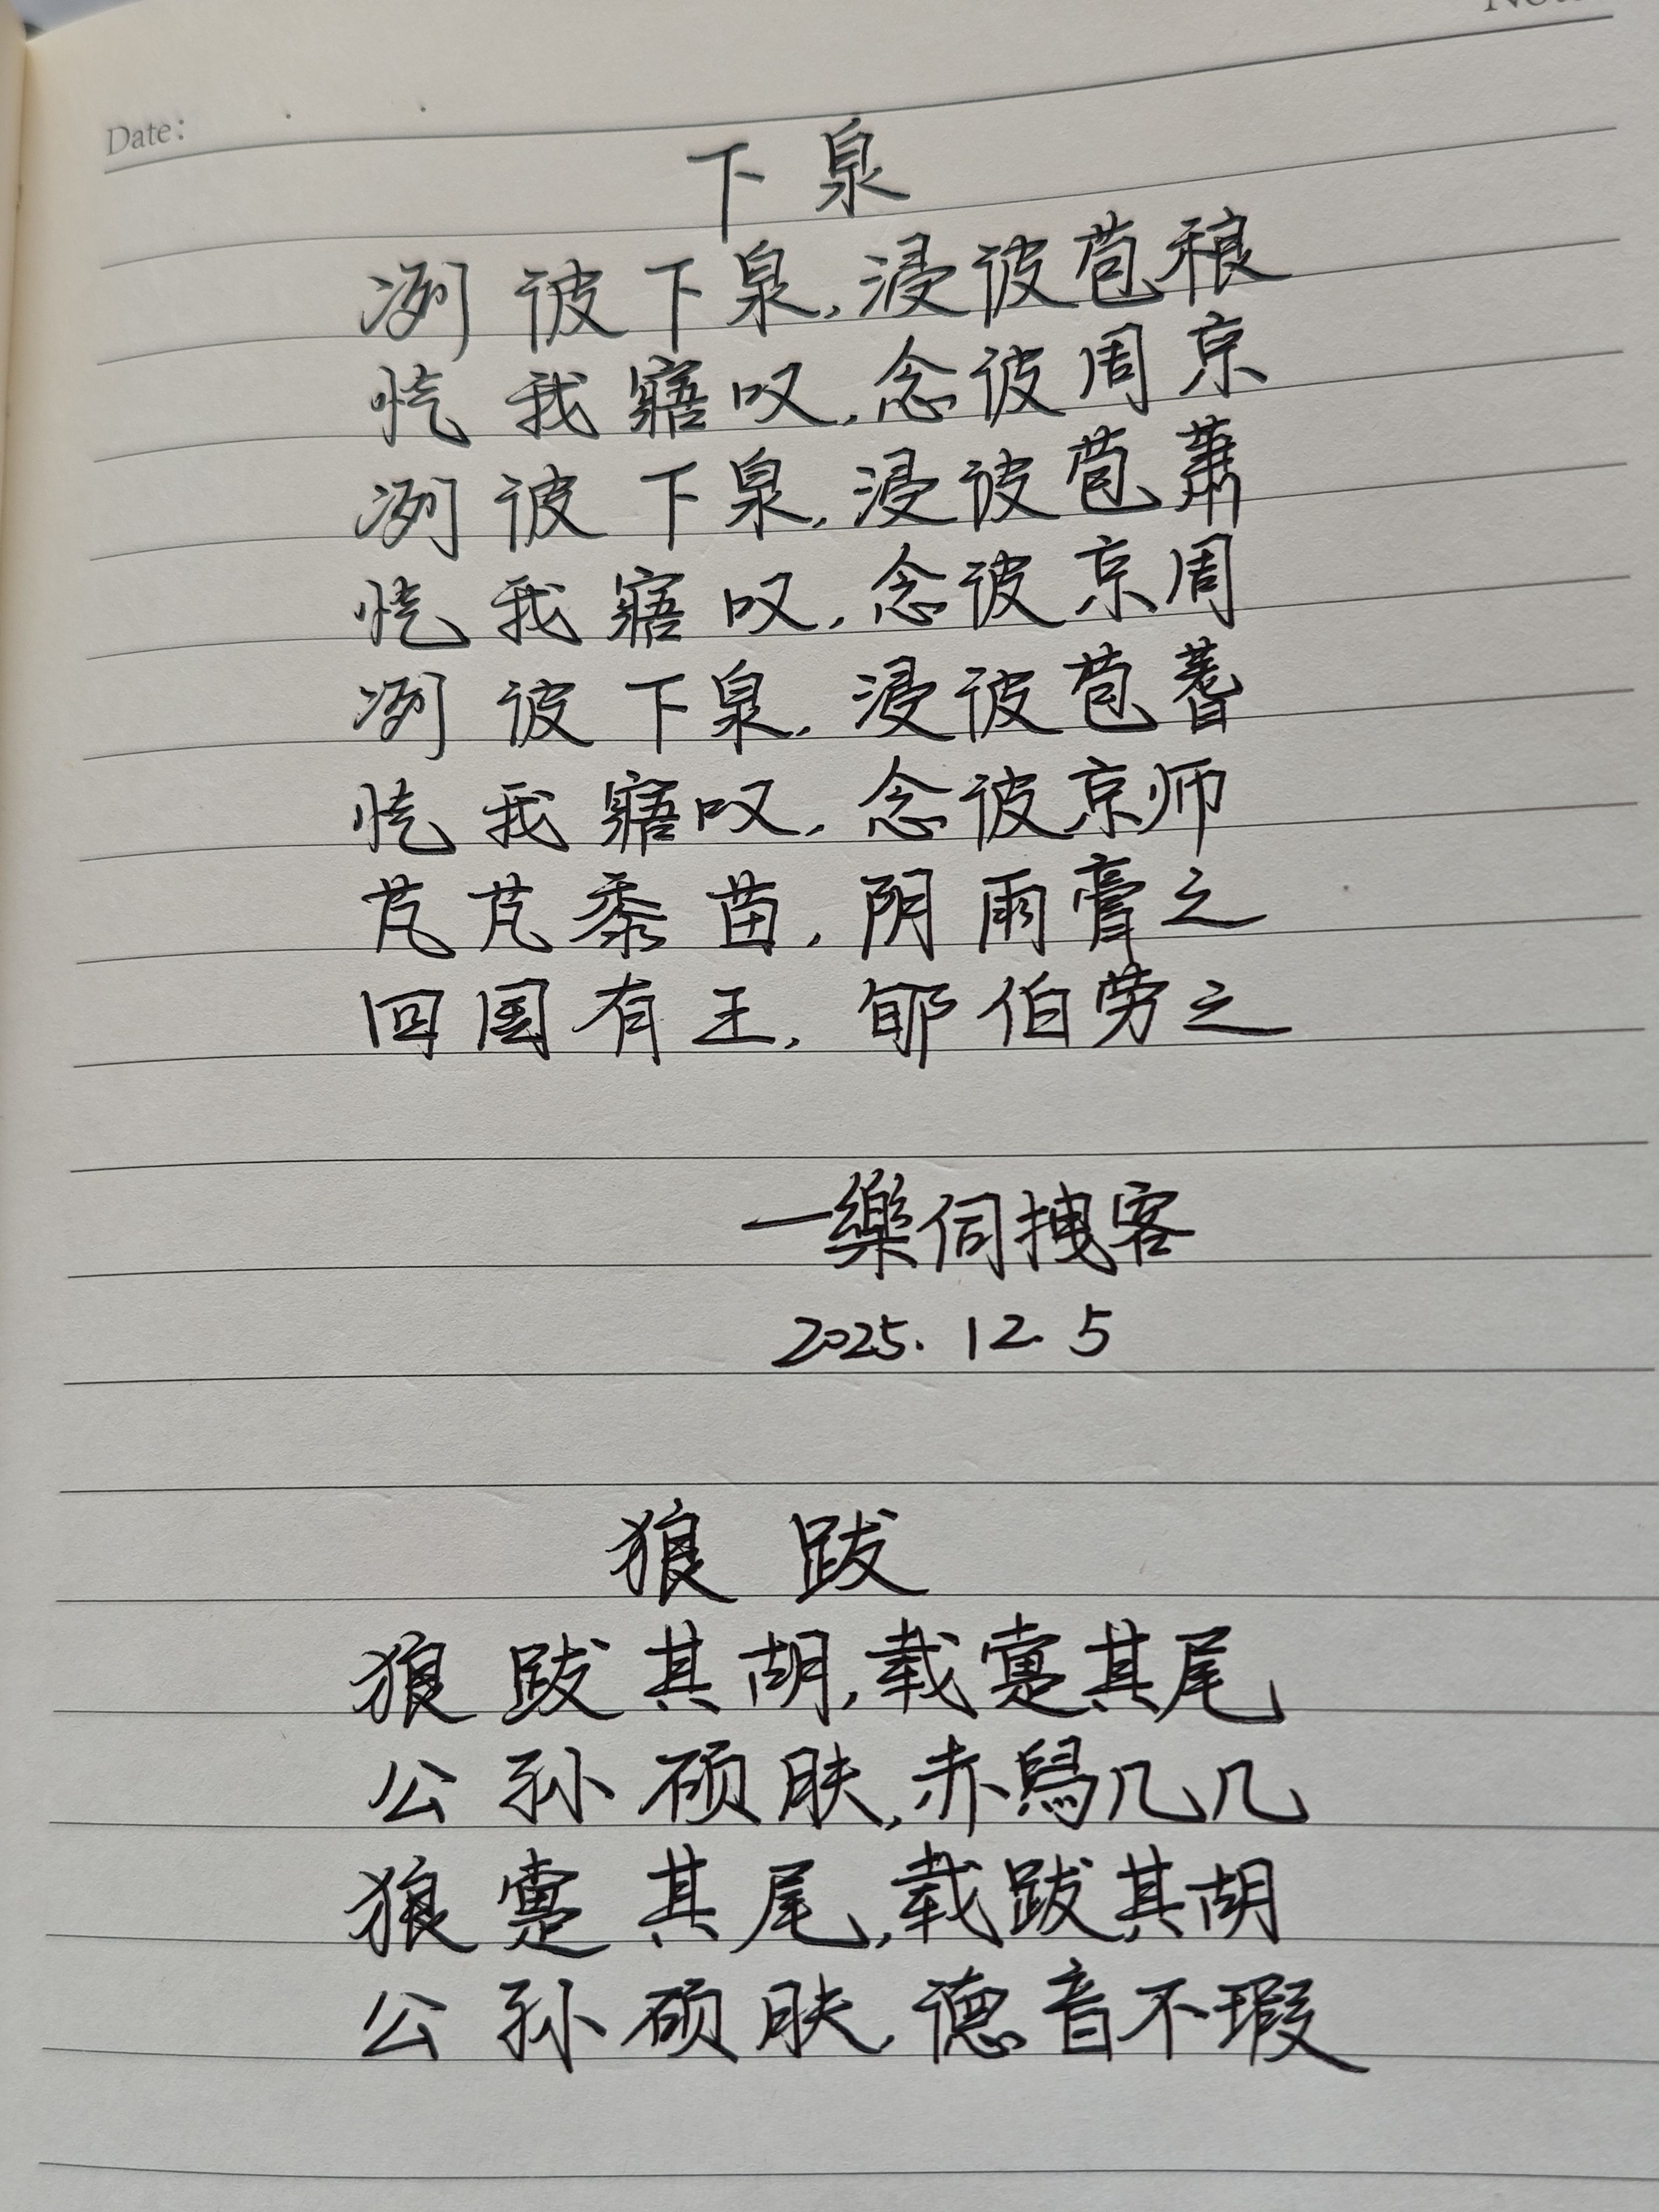 Date:
下泉
冽彼下泉,浸彼苞稂
忾我寤叹,念彼周京
冽彼下泉,浸彼苞萧
忾我寤叹,念彼京周
冽彼下泉,浸彼苞蓍
忾我寤叹,念彼京师
芃芃黍苗,阴雨膏之
四国有王,郇伯劳之
一樂伺拽客
2025.12.5
狼跋
狼跋其胡,载疐其尾
公孙硕肤,赤舄几几
狼疐其尾,载跋其胡
公孙硕肤,德音不瑕